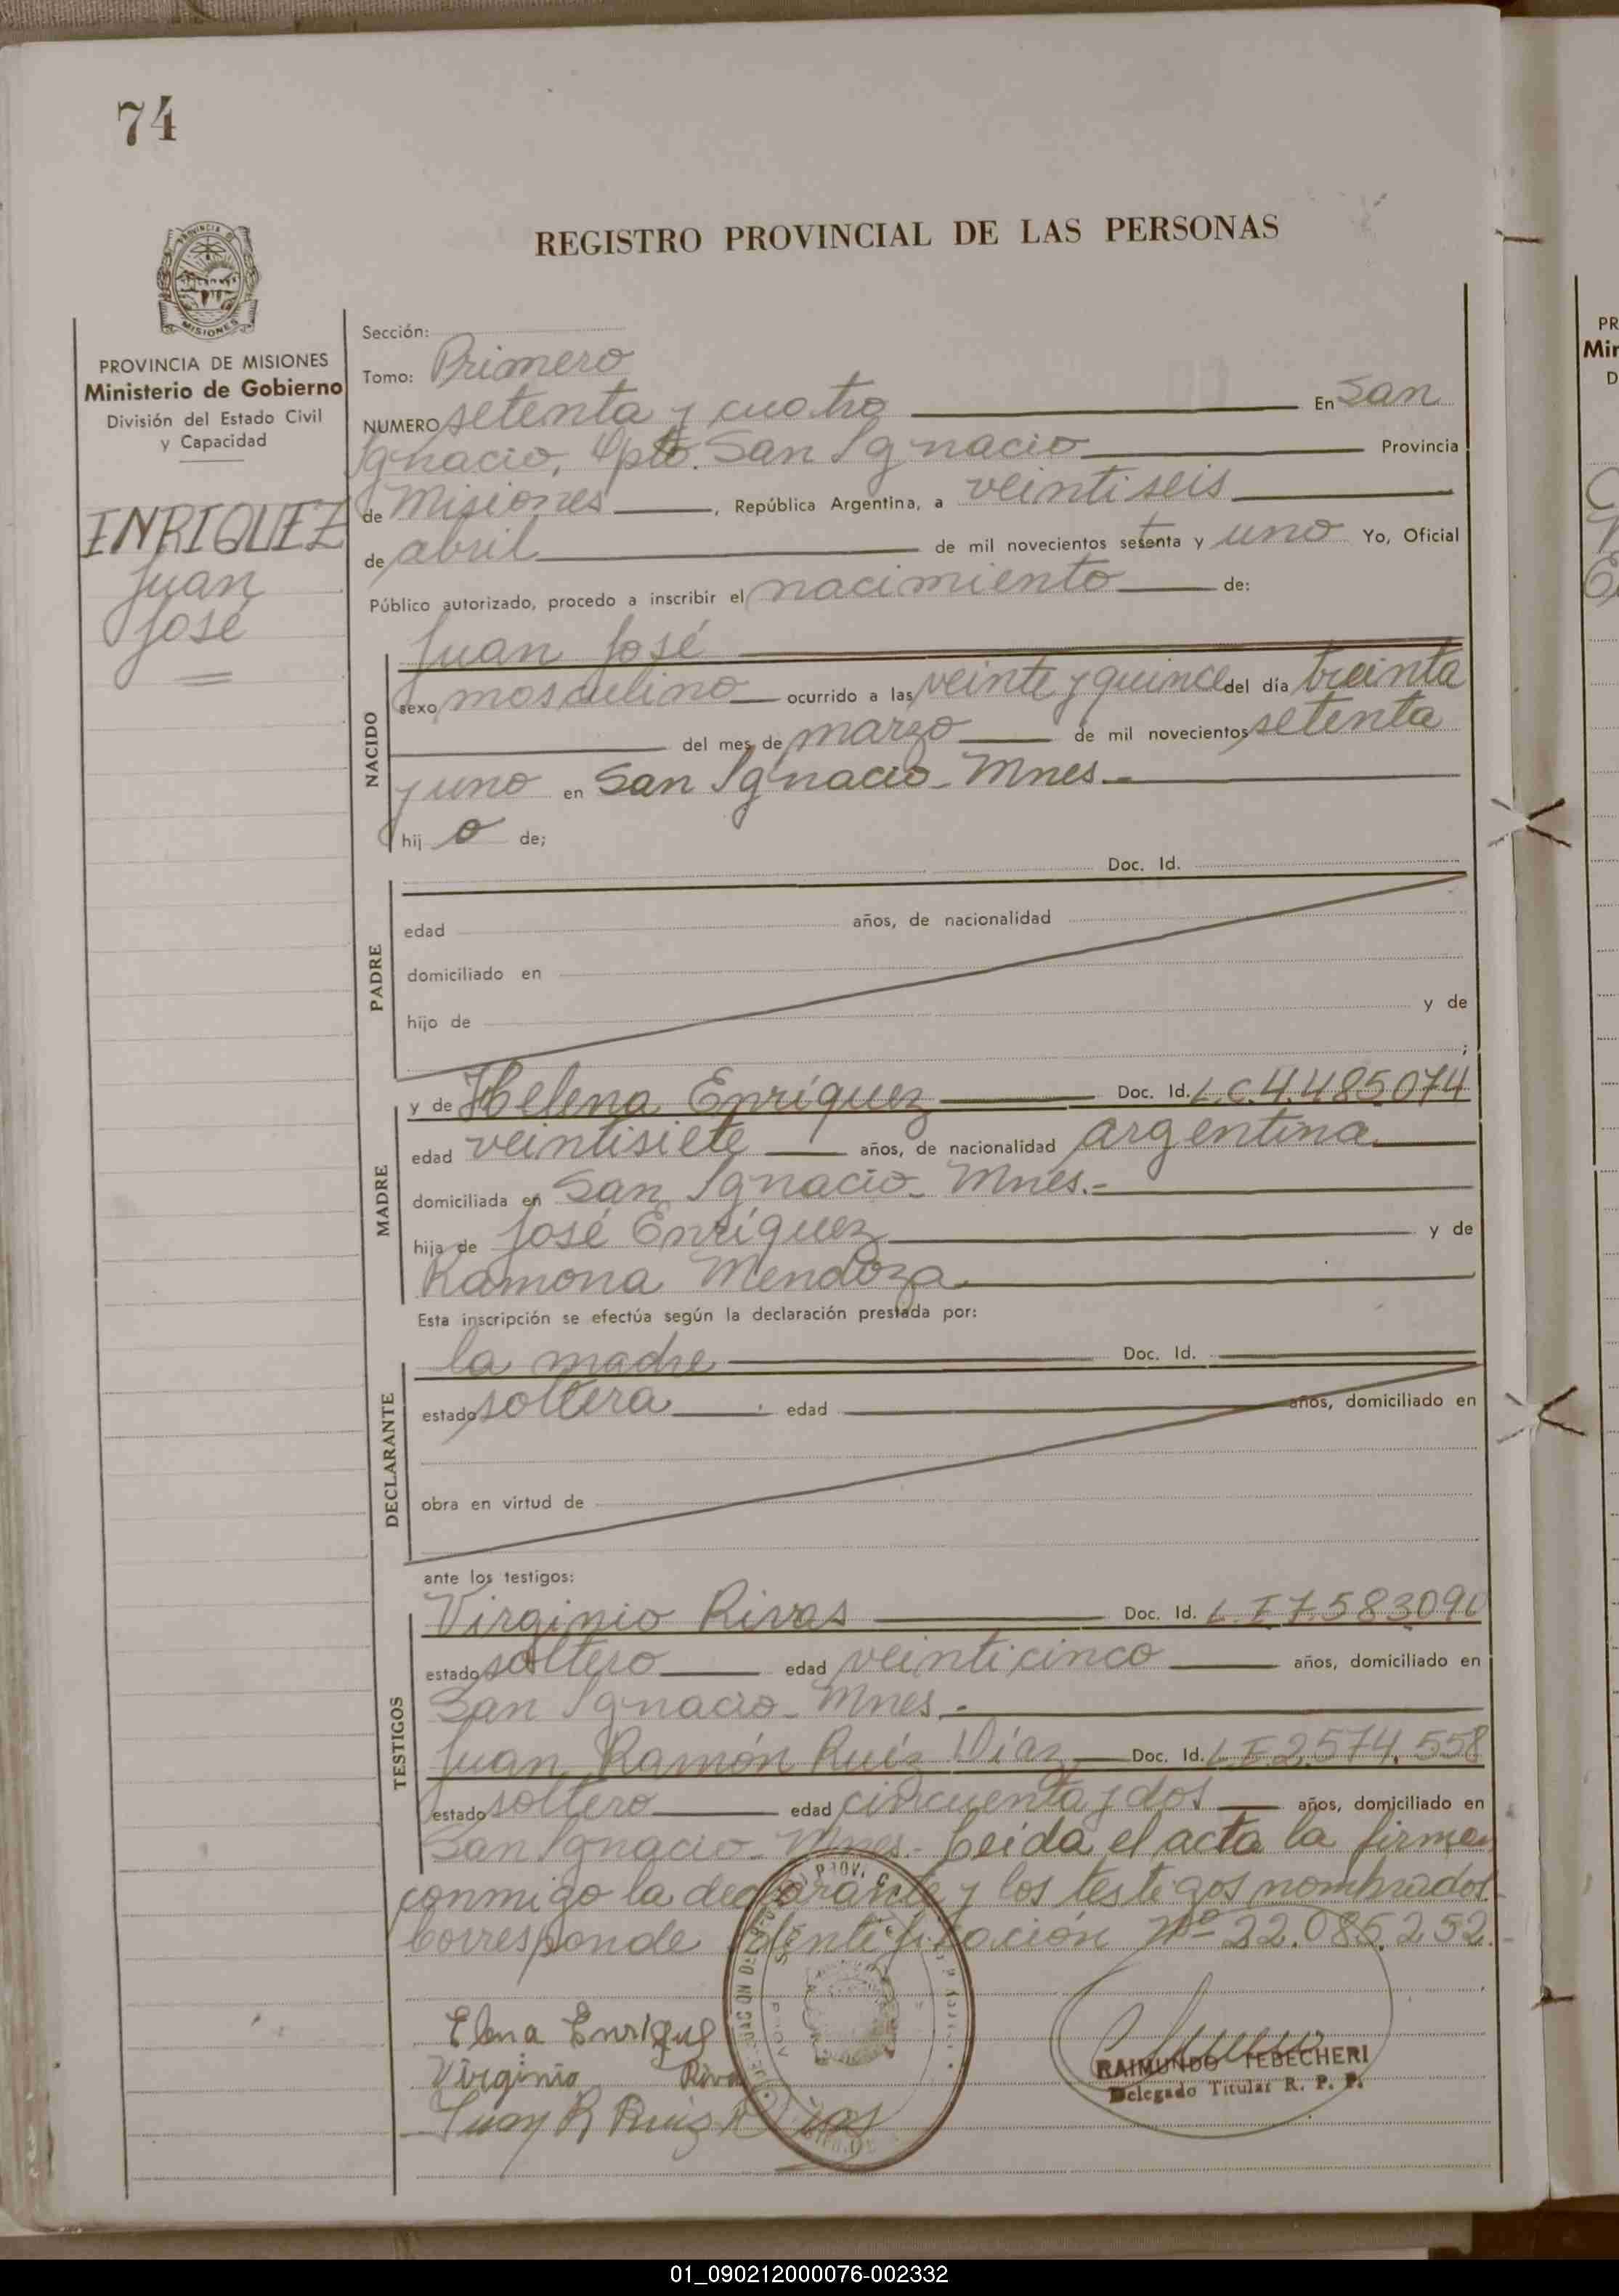 74
REGISTRO PROVINCIAL DE LAS PERSONAS
PROVINCIA DE MISIONES
Ministerio de Gobierno
División del Estado Civil
y Capacidad
ENRIQUEZ
Juan
José
Sección:
Tomo: Primero
NUMERO setenta y cuatro En San
Ignacio, Dpto. San Ignacio Provincia
de Misiones, República Argentina, a veintiseis
de abril de mil novecientos setenta y uno Yo, Oficial
Público autorizado, procedo a inscribir el nacimiento de:
NACIDO
Juan José
sexo masculino ocurrido a las veinte y quince del día treinta
del mes de marzo de mil novecientos setenta
y uno en San Ignacio - Mnes.-
hij o de;
PADRE
Doc. Id.
edad años, de nacionalidad
domiciliado en
hijo de y de
;
MADRE
y de Helena Enríquez Doc. Id. L.C. 4.485.074
edad veintisiete años, de nacionalidad argentina
domiciliada en San Ignacio - Mnes.-
hija de José Enríquez y de
Ramona Mendoza
Esta inscripción se efectúa según la declaración prestada por:
DECLARANTE
la madre Doc. Id.
estado soltera edad años, domiciliado en
obra en virtud de
ante los testigos:
TESTIGOS
Virginio Rivas Doc. Id. L.E 7.583.090
estado soltero edad veinticinco años, domiciliado en
San Ignacio - Mnes.-
Juan Ramón Ruíz Díaz Doc. Id. L.E 2.574.558
estado soltero edad cincuenta y dos años, domiciliado en
San Ignacio - Mnes.- Leida el acta la firman
conmigo la declarante y los testigos nombrados
Corresponde identificación Nº 22.085.252.-
Elena Enrique
Virginio Riva
Juan R Ruiz Dias
RAIMUNDO TEBECHERI
Delegado Titular R. P. P.
01_090212000076-002332